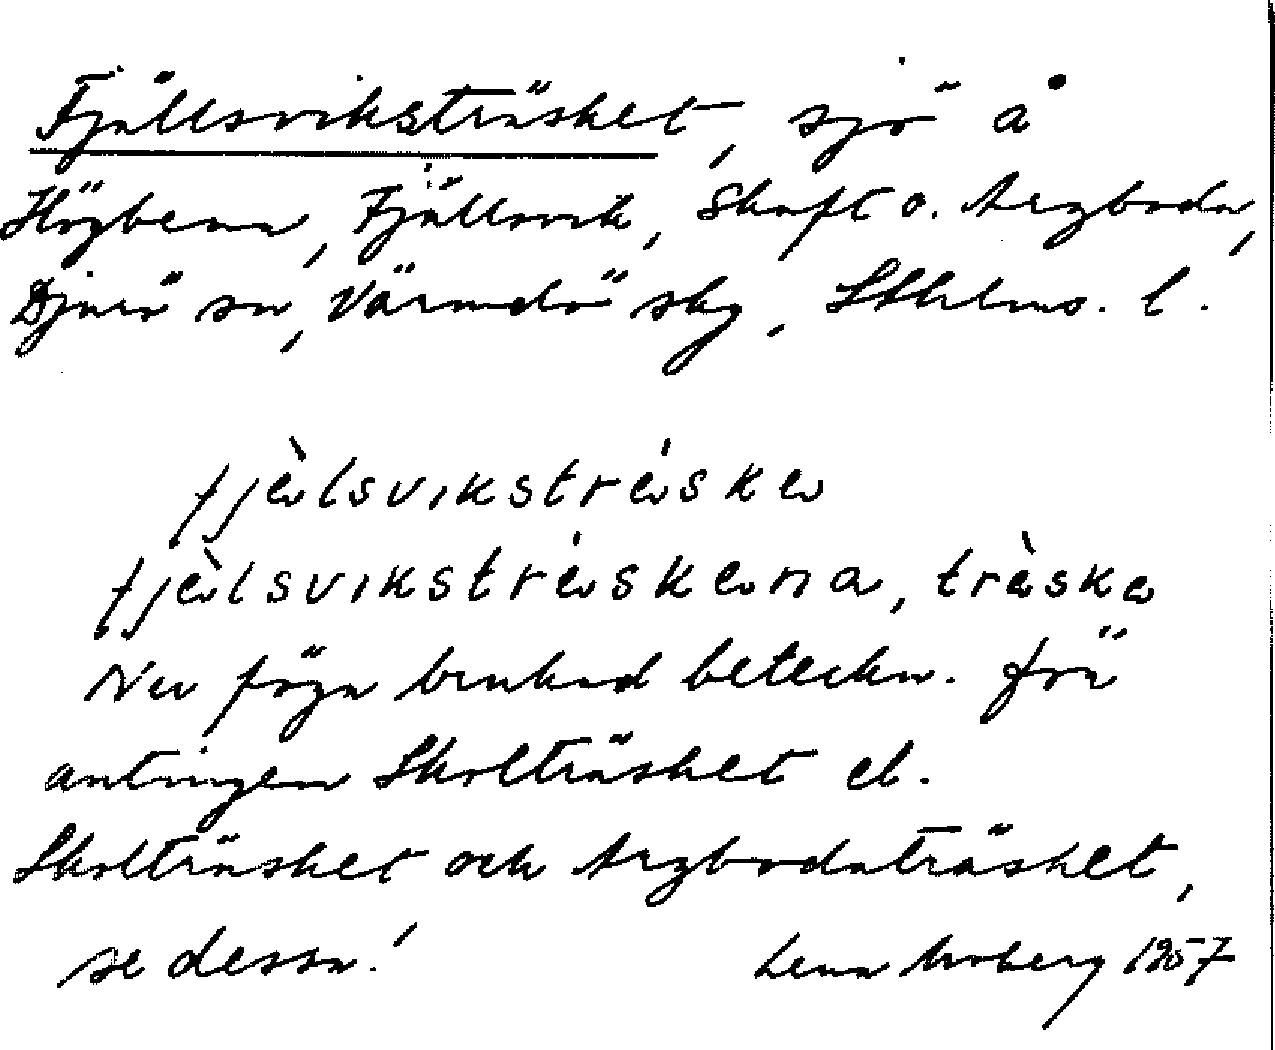 Fjällsviksträsket, sjö å
Högbena, Fjällsvik, Skaft o. Arzboda,
Djurö sn, Värmdö skg, Sthlms. l.
fjèlsvikstréske
fjèlsvikstréskena, trèske
Nu föga brukad beteckn. för
antingen Skolträsket el.
Skolträsket och Arzbodaträsket,
se dessa!
Lena Moberg 1957